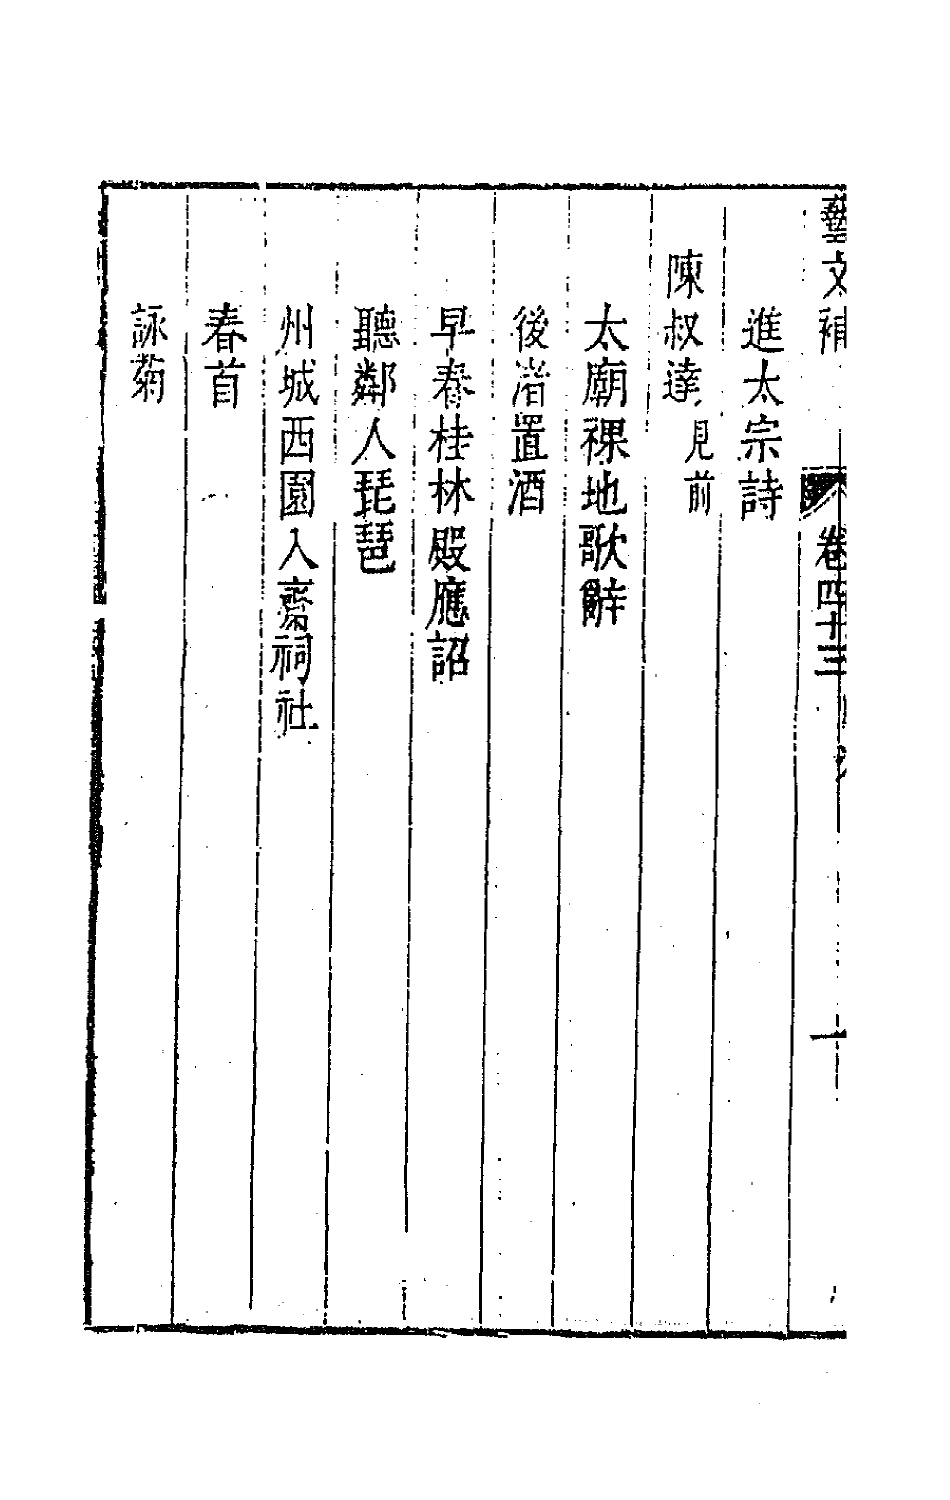 藝文補 卷四十三 一
進太宗詩
陳叔達見前
太廟祼地歌辭
後渚置酒
早春桂林殿應詔
聽鄰人琵琶
州城西園入齋祠社
春首
詠菊